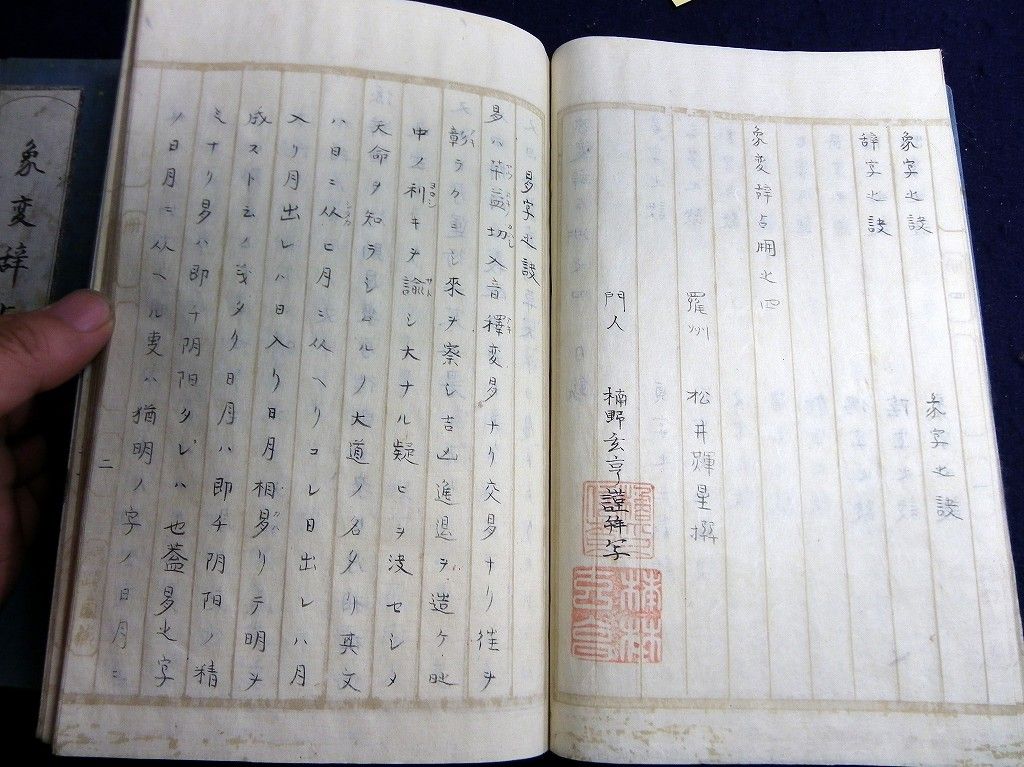 象字之訣
象字之訣
辞字之訣
象変辞占用之四
羅州 松井輝星撰
門人 楠野玄亨謹祥写
易字之訣
易ハ羊益切入音釋変易ナリ交易ナリ往ヲ
彰ラクシ來ヲ察シ吉凶進退ヲ造ケ
中ノ利キヲ諭シ大ナル疑ヒヲ決セシメ
天命ヲ知ラシムルノ大道ノ名タリ其文
ハ日ニ从ヒ月ニ从ヘリコレ日出レハ月
入リ月出レハ日入リ日月相易リテ明ヲ
成スト云ノ義タリ日月ハ即チ阴阳ノ精
ミナリ易ハ即チ阴阳タレハ也蓋易之字
ノ日月ニ从ヘル叓ハ猶明ノ字ノ日月ニ
二
象変辞